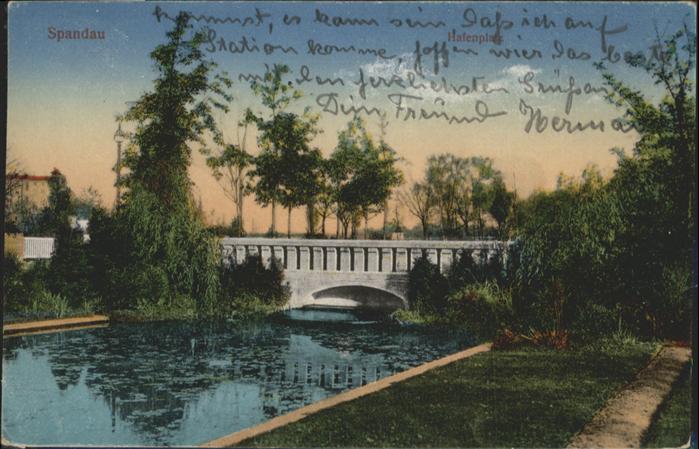 kommst, es kann sein daß ich auf
Spandau
Hafenplatz
Station komme, hoffen wier das beste
mit den herzlichsten Grüßen
Dein Freund Herman